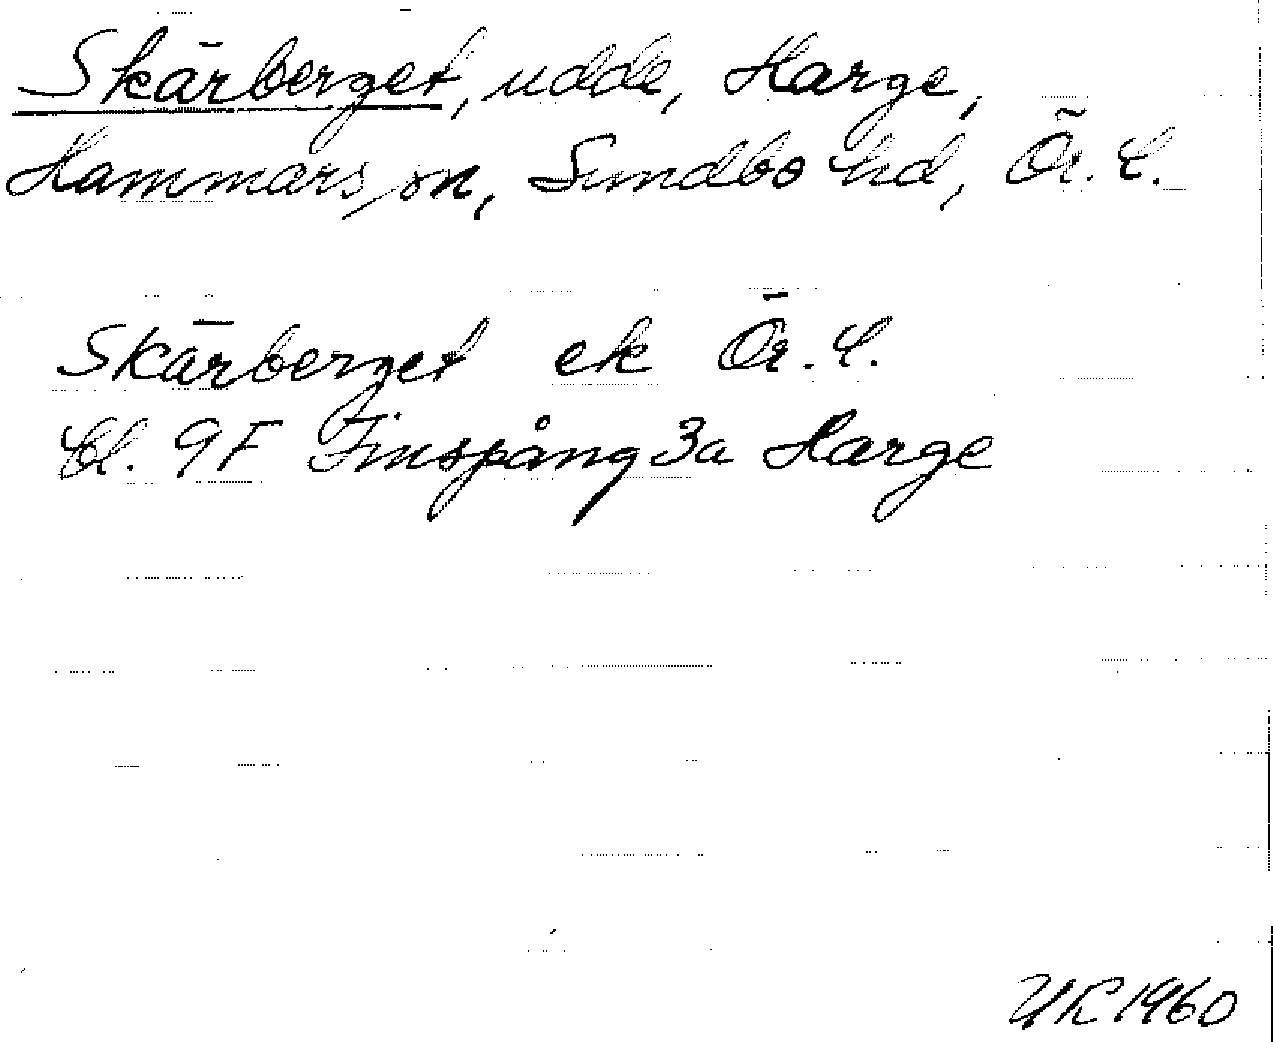 Skärberget, udde, Harge,
Hammars sn, Sundbo hd, Ör. l.
Skärberget ek Ör. l.
bl. 9F Finspång 3a Harge
UK 1960